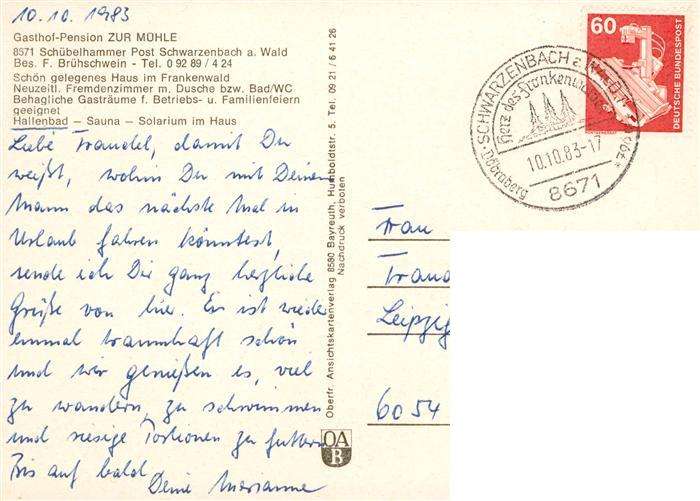 10.10.1983
Gasthof-Pension ZUR MÜHLE
8671 Schübelhammer Post Schwarzenbach a. Wald
Bes. F. Brühschwein - Tel. 0 92 89 / 4 24
Schön gelegenes Haus im Frankenwald
Neuzeitl. Fremdenzimmer m. Dusche bzw. Bad/WC
Behagliche Gasträume f. Betriebs- u. Familienfeiern
geeignet
Hallenbad – Sauna – Solarium im Haus
Liebe Traudel, damit Du
weißt, wohin Du mit Deinem
Mann das nächste Mal in
Urlaub fahren könntest,
sende ich Dir ganz herzliche
Grüße von hier. Es ist wieder
einmal traumhaft schön
und wir genießen es, viel
zu wandern, zu schwimmen
und riesige Portionen zu futtern
Bis auf bald
Deine Marianne
Oberfr. Ansichtskartenverlag 8580 Bayreuth, Humboldtstr. 5, Tel. 09 21 / 6 41 26
Nachdruck verboten
OA
B
60
DEUTSCHE BUNDESPOST
SCHWARZENBACH a.
Herz des Frankenwaldes
Döbraberg
10.10.83-17
8671
Frau
Trau
Leipzig
6054